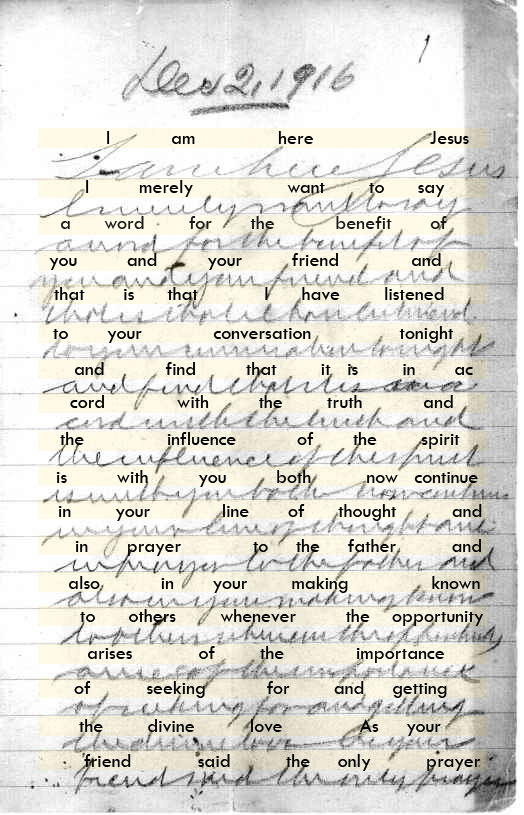 1
Dec 2, 1916
I am here Jesus
I am here Jesus
I merely want to say
I merely want to say
a word for the benefit of
a word for the benefit of
you and your friend and
you and your friend and
that is that I have listened
that is that I have listened
to your conversation tonight
to your conversation tonight
and find that it is in ac
and find that it is in ac
cord with the truth and
cord with the truth and
the influence of the spirit
the influence of the spirit
is with you both now continue
is with you both now continue
in your line of thought and
in your line of thought and
in prayer to the father and
in prayer to the father and
also in your making known
also in your making known
to others whenever the opportunity
to others whenever the opportunity
arises of the importance
arises of the importance
of seeking for and getting
of seeking for and getting
the divine love As your
the divine love As your
friend said the only prayer
friend said the only prayer